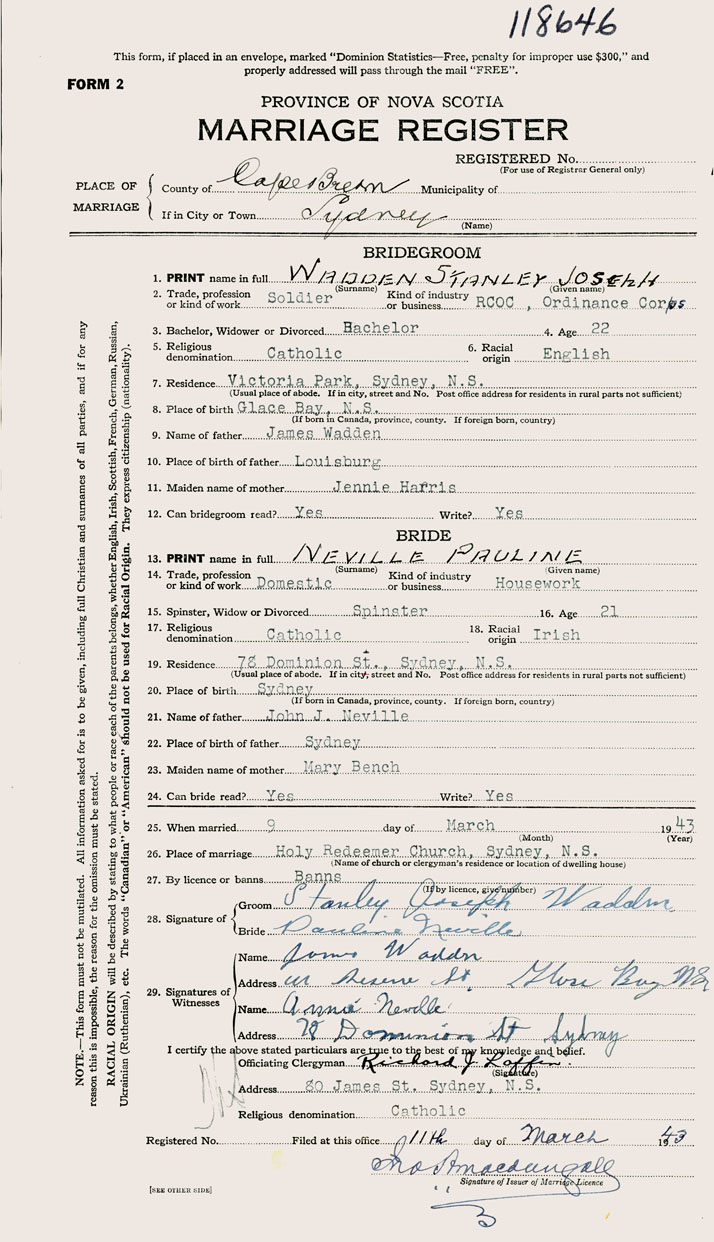 118646
This form, if placed in an envelope, marked "Dominion Statistics—Free, penalty for improper use $300," and
properly addressed will pass through the mail "FREE".
FORM 2
PROVINCE OF NOVA SCOTIA
MARRIAGE REGISTER
REGISTERED No.
(For use of Registrar General only)
PLACE OF MARRIAGE
County of Cape Breton Municipality of
If in City or Town Sydney
(Name)
BRIDEGROOM
1. PRINT name in full WADDEN STANLEY JOSEPH
(Surname) (Given name)
2. Trade, profession or kind of work Soldier Kind of industry or business RCOC , Ordinance Corps
3. Bachelor, Widower or Divorced Bachelor 4. Age 22
5. Religious denomination Catholic 6. Racial origin English
7. Residence Victoria Park, Sydney, N.S.
(Usual place of abode. If in city, street and No. Post office address for residents in rural parts not sufficient)
8. Place of birth Glace Bay, N.S.
(If born in Canada, province, county. If foreign born, country)
9. Name of father James Wadden
10. Place of birth of father Louisburg
11. Maiden name of mother Jennie Harris
12. Can bridegroom read? Yes Write? Yes
BRIDE
13. PRINT name in full NEVILLE PAULINE
(Surname) (Given name)
14. Trade, profession or kind of work Domestic Kind of industry or business Housework
15. Spinster, Widow or Divorced Spinster 16. Age 21
17. Religious denomination Catholic 18. Racial origin Irish
19. Residence 78 Dominion St., Sydney, N.S.
(Usual place of abode. If in city, street and No. Post office address for residents in rural parts not sufficient)
20. Place of birth Sydney
(If born in Canada, province, county. If foreign born, country)
21. Name of father John J. Neville
22. Place of birth of father Sydney
23. Maiden name of mother Mary Bench
24. Can bride read? Yes Write? Yes
25. When married 9 day of March 1943
(Month) (Year)
26. Place of marriage Holy Redeemer Church, Sydney, N.S.
(Name of church or clergyman's residence or location of dwelling house)
27. By licence or banns Banns
(If by licence, give number)
28. Signature of
Groom Stanley Joseph Wadden
Bride Pauline Neville
29. Signatures of Witnesses
Name James Wadden
Address St Glace Bay NS
Name Annie Neville
Address 78 Dominion St Sydney
I certify the above stated particulars are true to the best of my knowledge and belief.
Officiating Clergyman Richard J Laffin.
(Signature)
Address 80 James St. Sydney, N.S.
Religious denomination Catholic
Registered No. Filed at this office 11th day of March 1943
Signature of Issuer of Marriage Licence
[SEE OTHER SIDE]
NOTE.—This form must not be mutilated. All information asked for is to be given, including full Christian and surnames of all parties, and if for any
reason this is impossible, the reason for the omission must be stated.
RACIAL ORIGIN will be described by stating to what people or race each of the parents belongs, whether English, Irish, Scottish, French, German, Russian,
Ukrainian (Ruthenian), etc. The words "Canadian" or "American" should not be used for Racial Origin. They express citizenship (nationality).